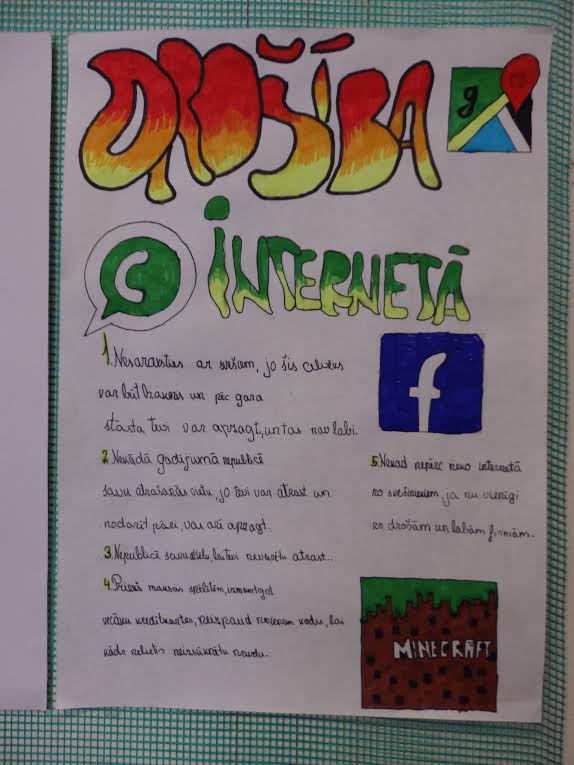 DROŠĪBA
g
INTERNETĀ
1. Nesaraksties ar svešiem, jo šis cilvēks
var būt braucis un pēc gara
stāsta tevi var apzagt, un tas nav labi.
f
2. Nekādā gadījumā nepublicē
savu atrašanās vietu, jo tevi var atrast un
nodarīt pāri, var arī apzagt.
3. Nepublicē savu, lai tevi nevarētu atrast..
4. maksas spēlītēm, izmantojot
vecāku kredītkartes, neizpaud nevienam kodu, lai
kāds neizkrāptu naudu.
5. Nekad nepērc neko internetā
no svešiniekiem, ja nu vienīgi
no drošām un labām firmām.
MINECRAFT